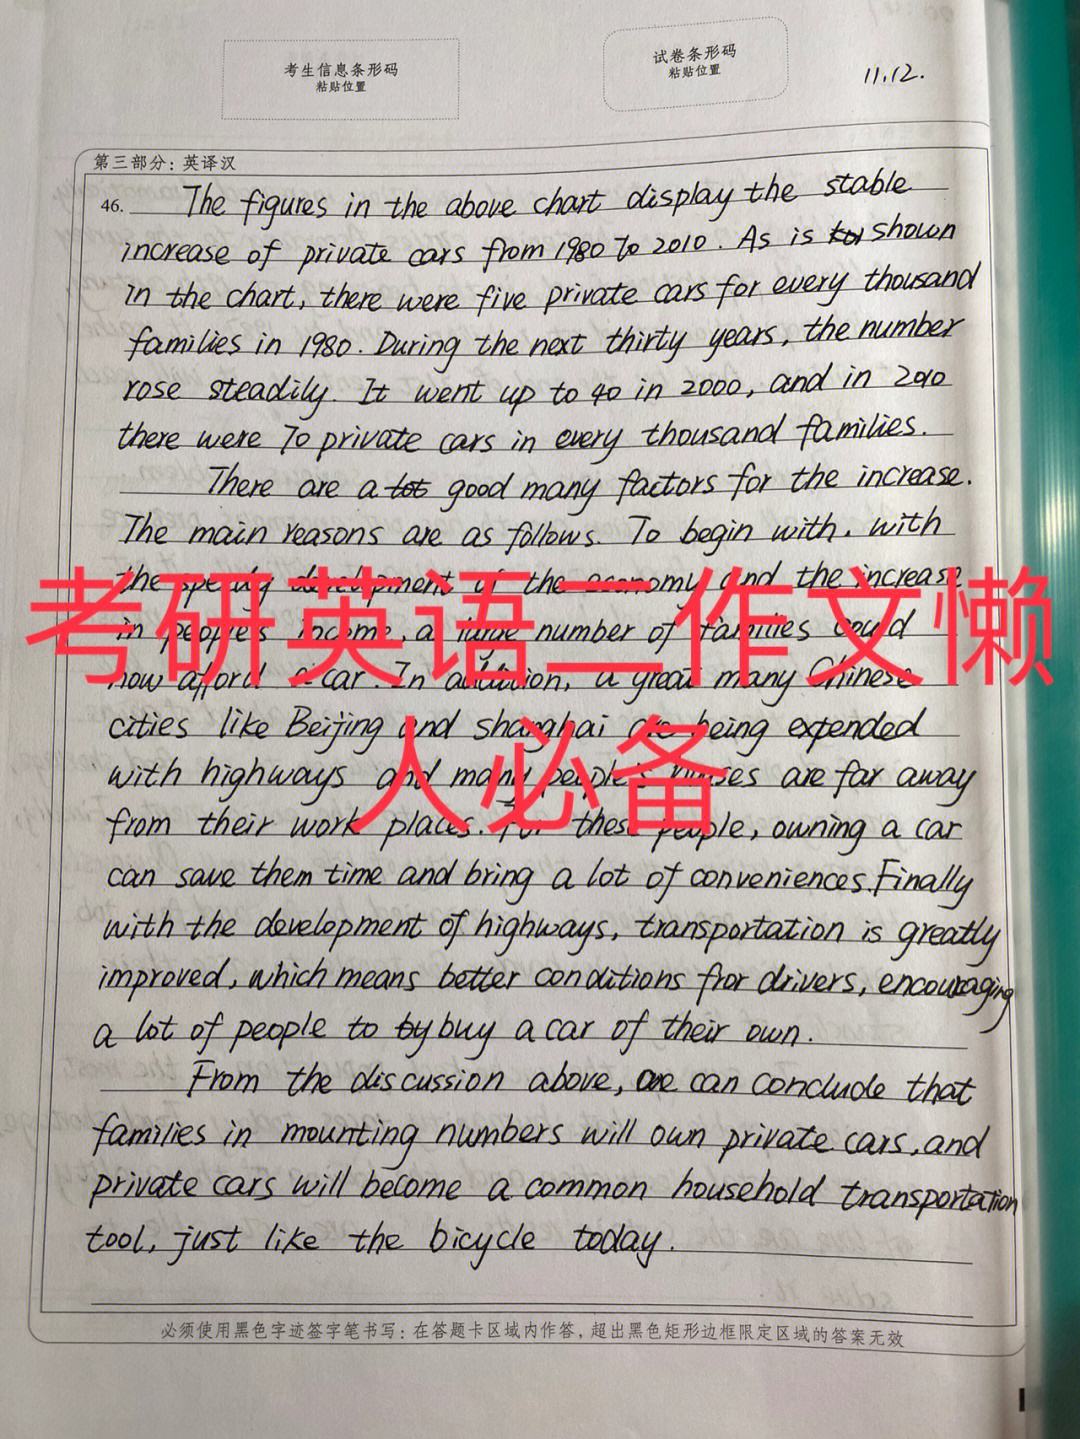 考生信息条形码
粘贴位置
试卷条形码
粘贴位置
11.12.
第三部分：英译汉
46. The figures in the above chart display the stable
increase of private cars from 1980 to 2010. As is shown
in the chart, there were five private cars for every thousand
families in 1980. During the next thirty years, the number
rose steadily. It went up to 40 in 2000, and in 2010
there were 70 private cars in every thousand families.
There are a lot good many factors for the increase.
The main reasons are as follows. To begin with, with
the speedy development of the economy and the increase
in people's income, a large number of families could
now afford a car. In addition, a great many Chinese
cities like Beijing and shanghai are being expended
with highways and many people's houses are far away
from their work places. For these people, owning a car
can save them time and bring a lot of conveniences. Finally
with the development of highways, transportation is greatly
improved, which means better conditions fror drivers, encouraging
a lot of people to by buy a car of their own.
From the discussion above, one can conclude that
families in mounting numbers will own private cars, and
private cars will become a common household transportation
tool, just like the bicycle today.
考研英语二作文懒
人必备
必须使用黑色字迹签字笔书写：在答题卡区域内作答，超出黑色矩形边框限定区域的答案无效